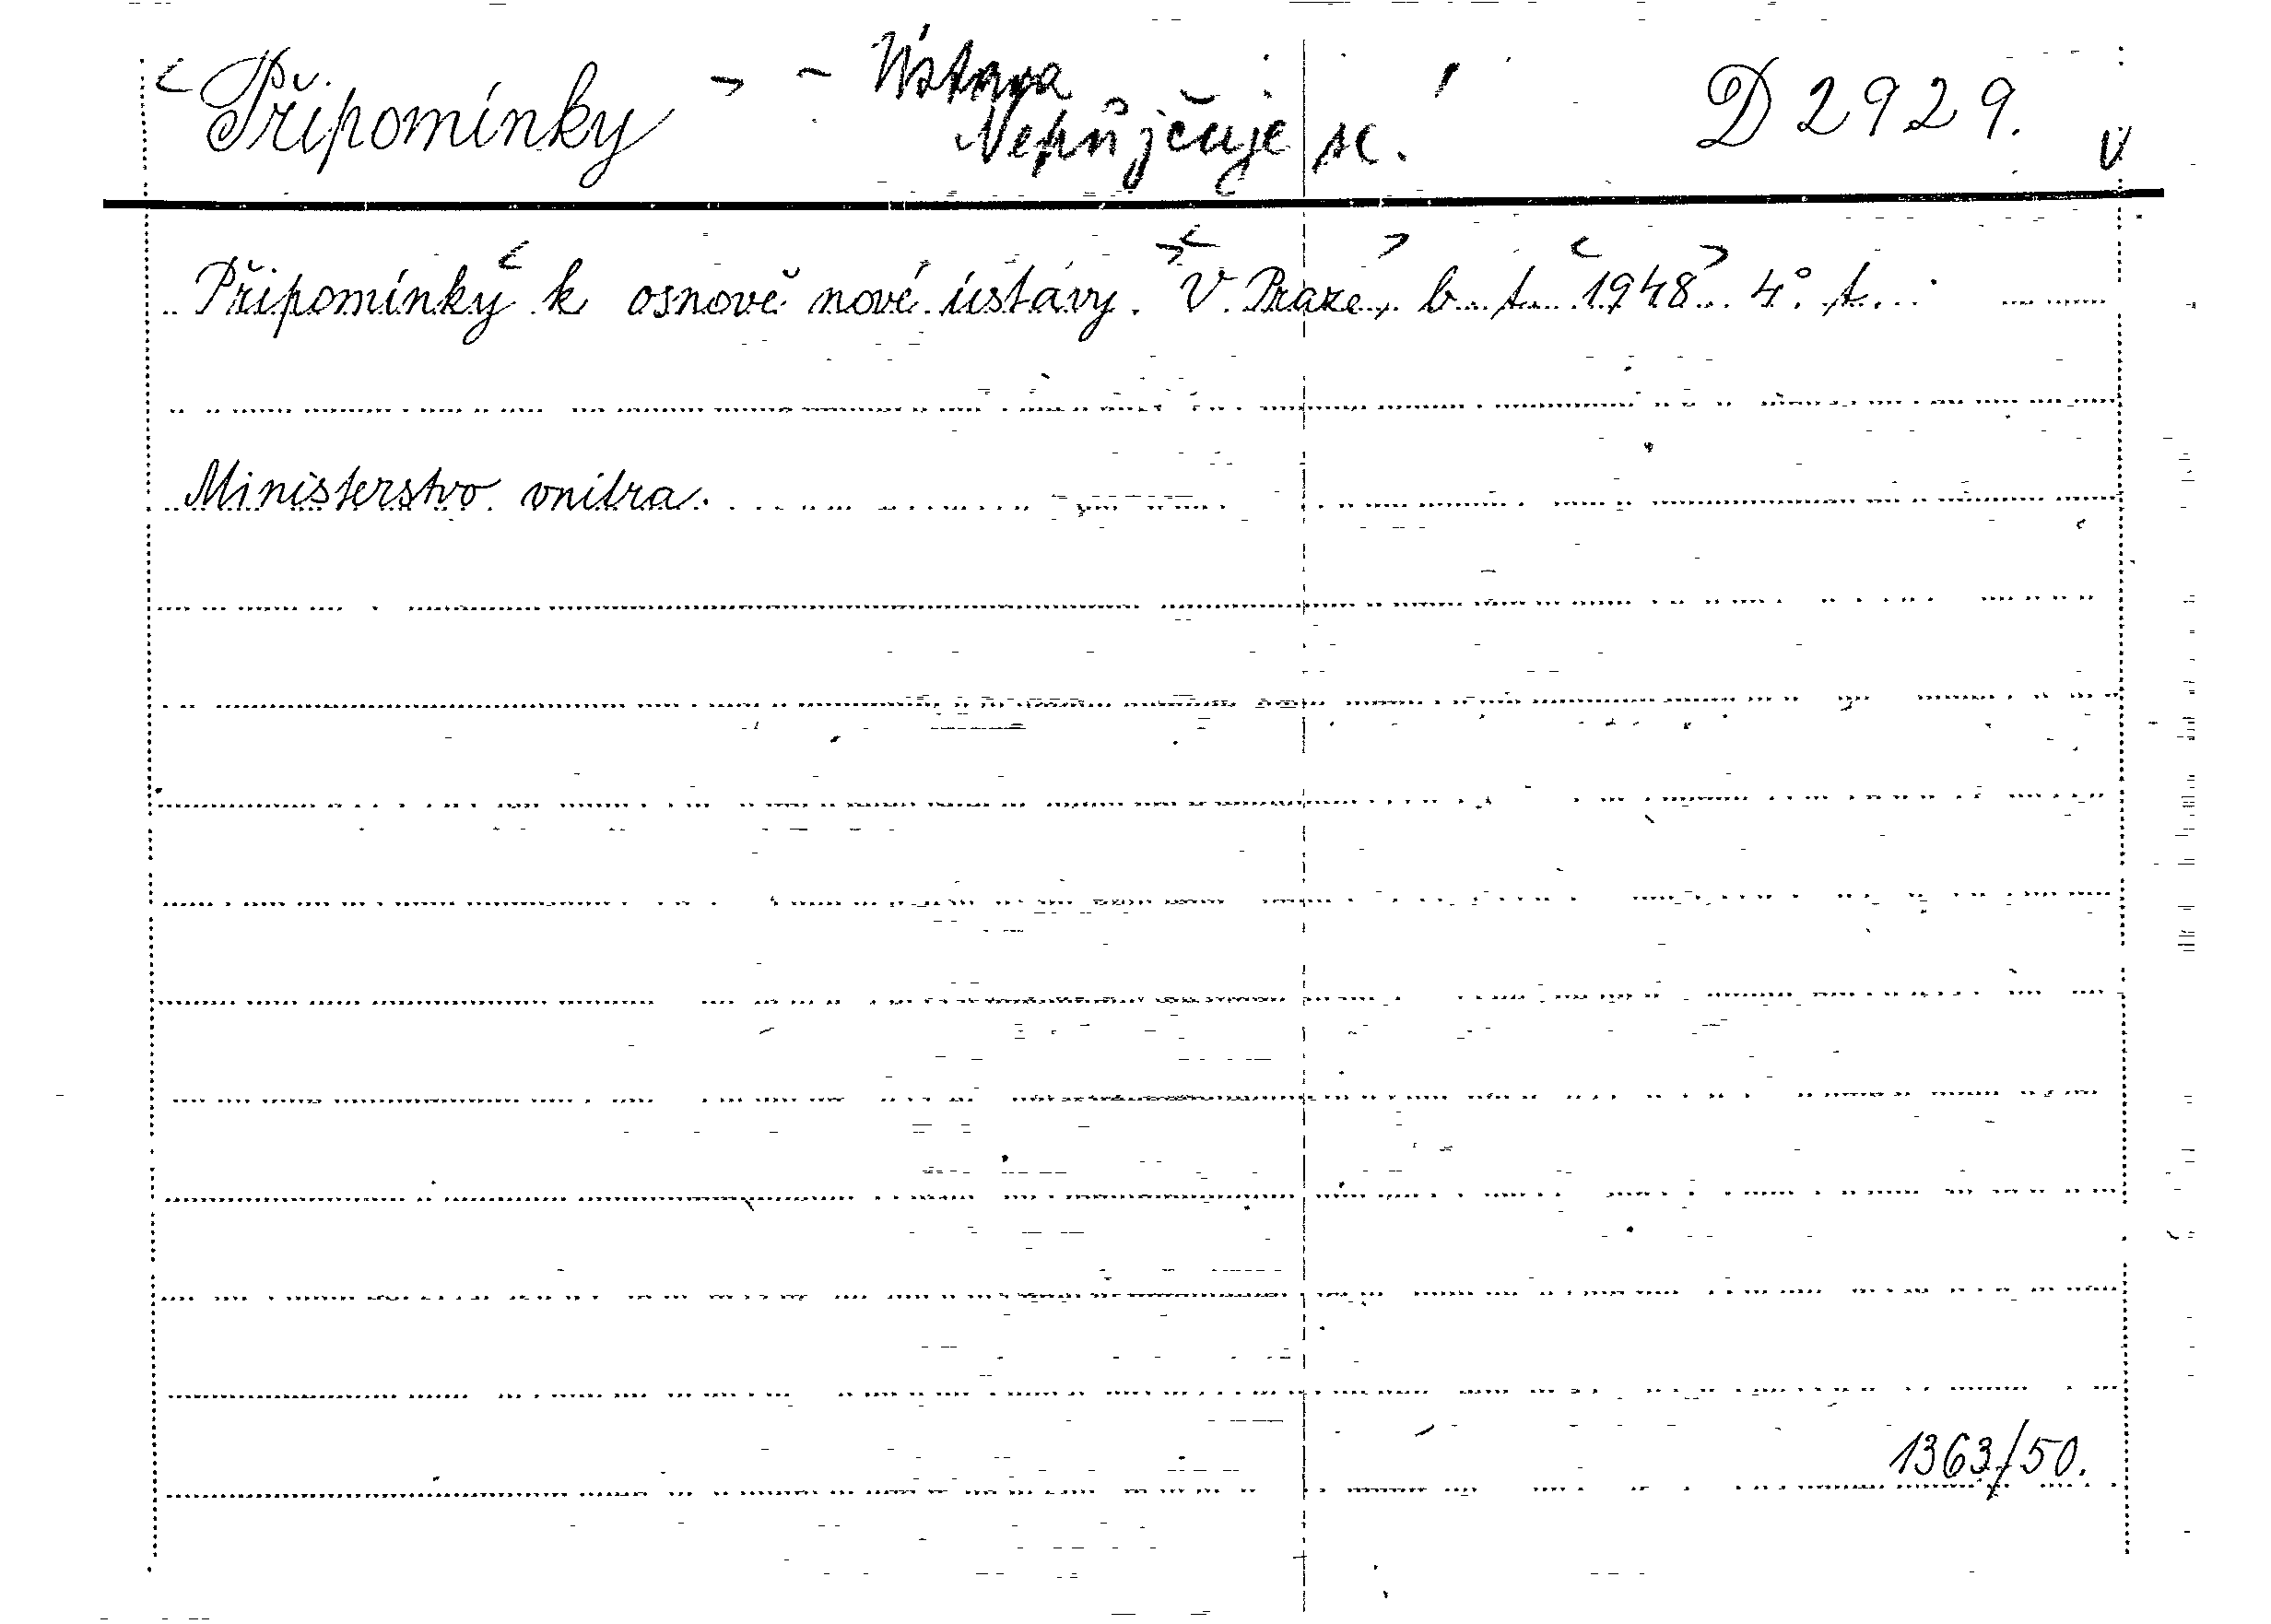 <Připomínky> - Ústava D 2929.
Nepůjčuje se. v
Připomínky <k osnově nové ústavy.> <V Praze,> b. t. <1948>. 4° t.
Ministerstvo vnitra.
1363/50.